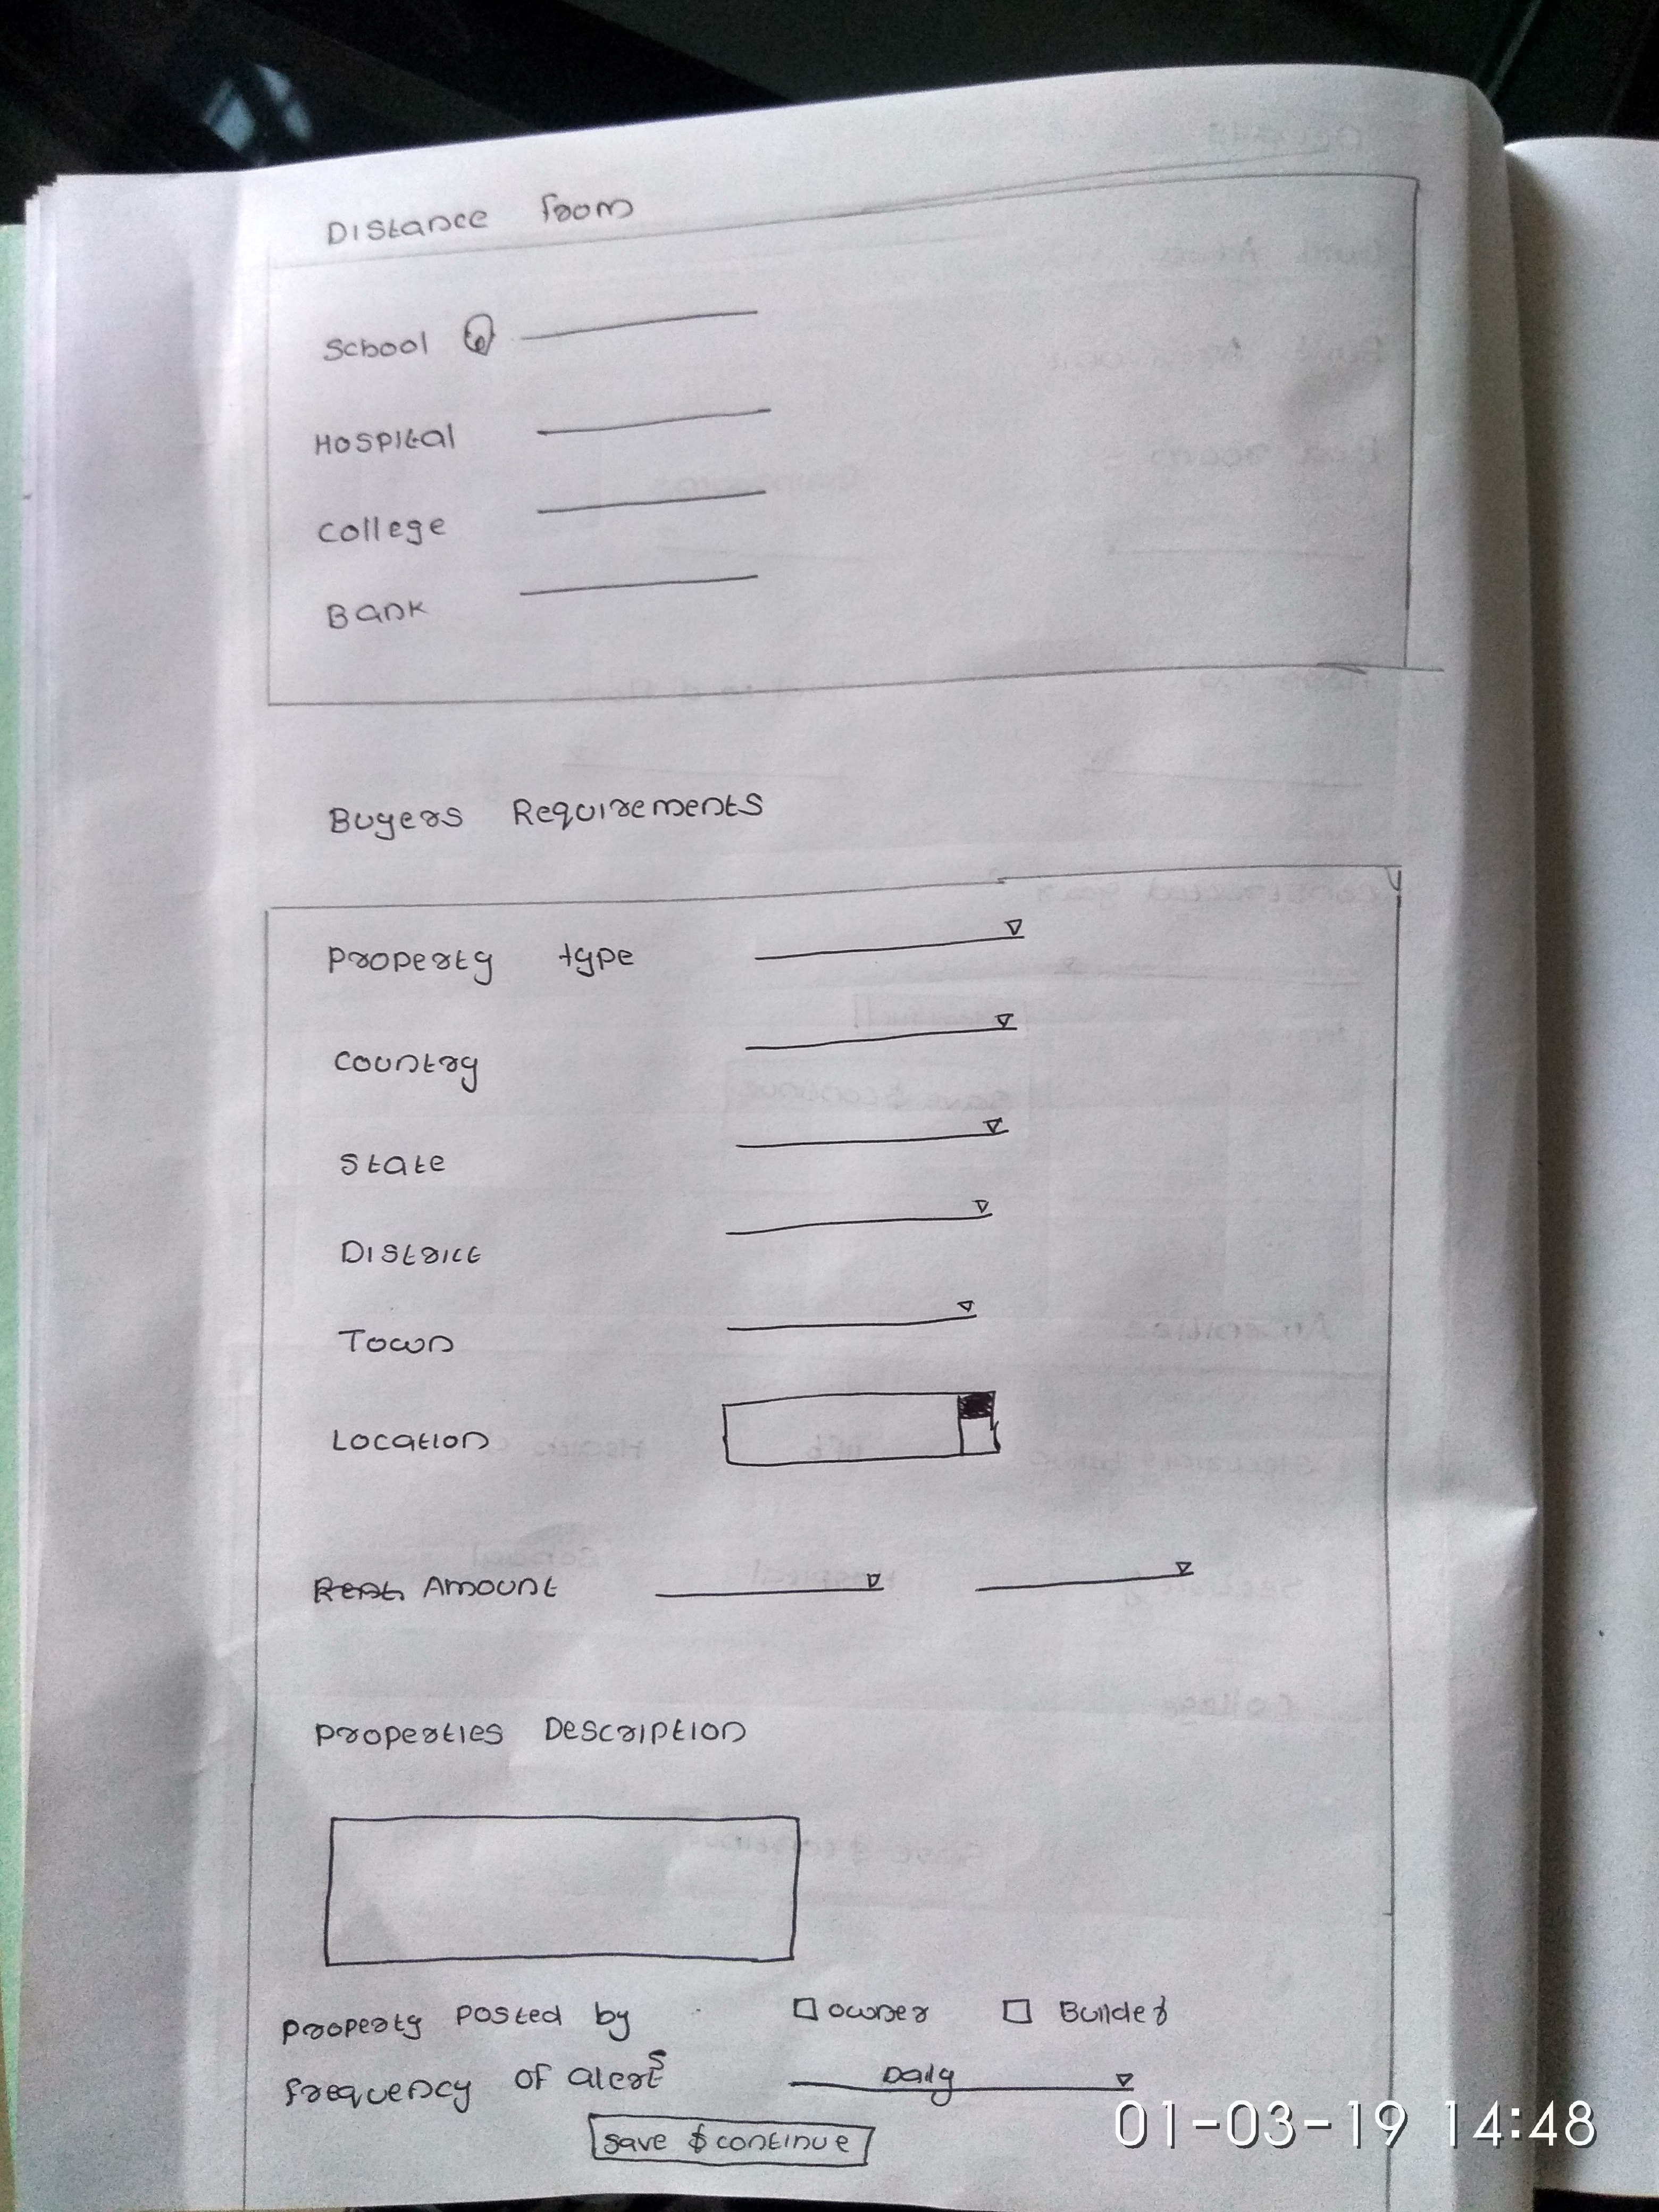 Distance from
School
Hospital
College
Bank
Buyers Requirements
Property type
Country
State
District
Town
Location
Rent Amount
Properties Description
Property Posted by Owner Builder
frequency of alerts Daily
save & continue
01-03-19 14:48